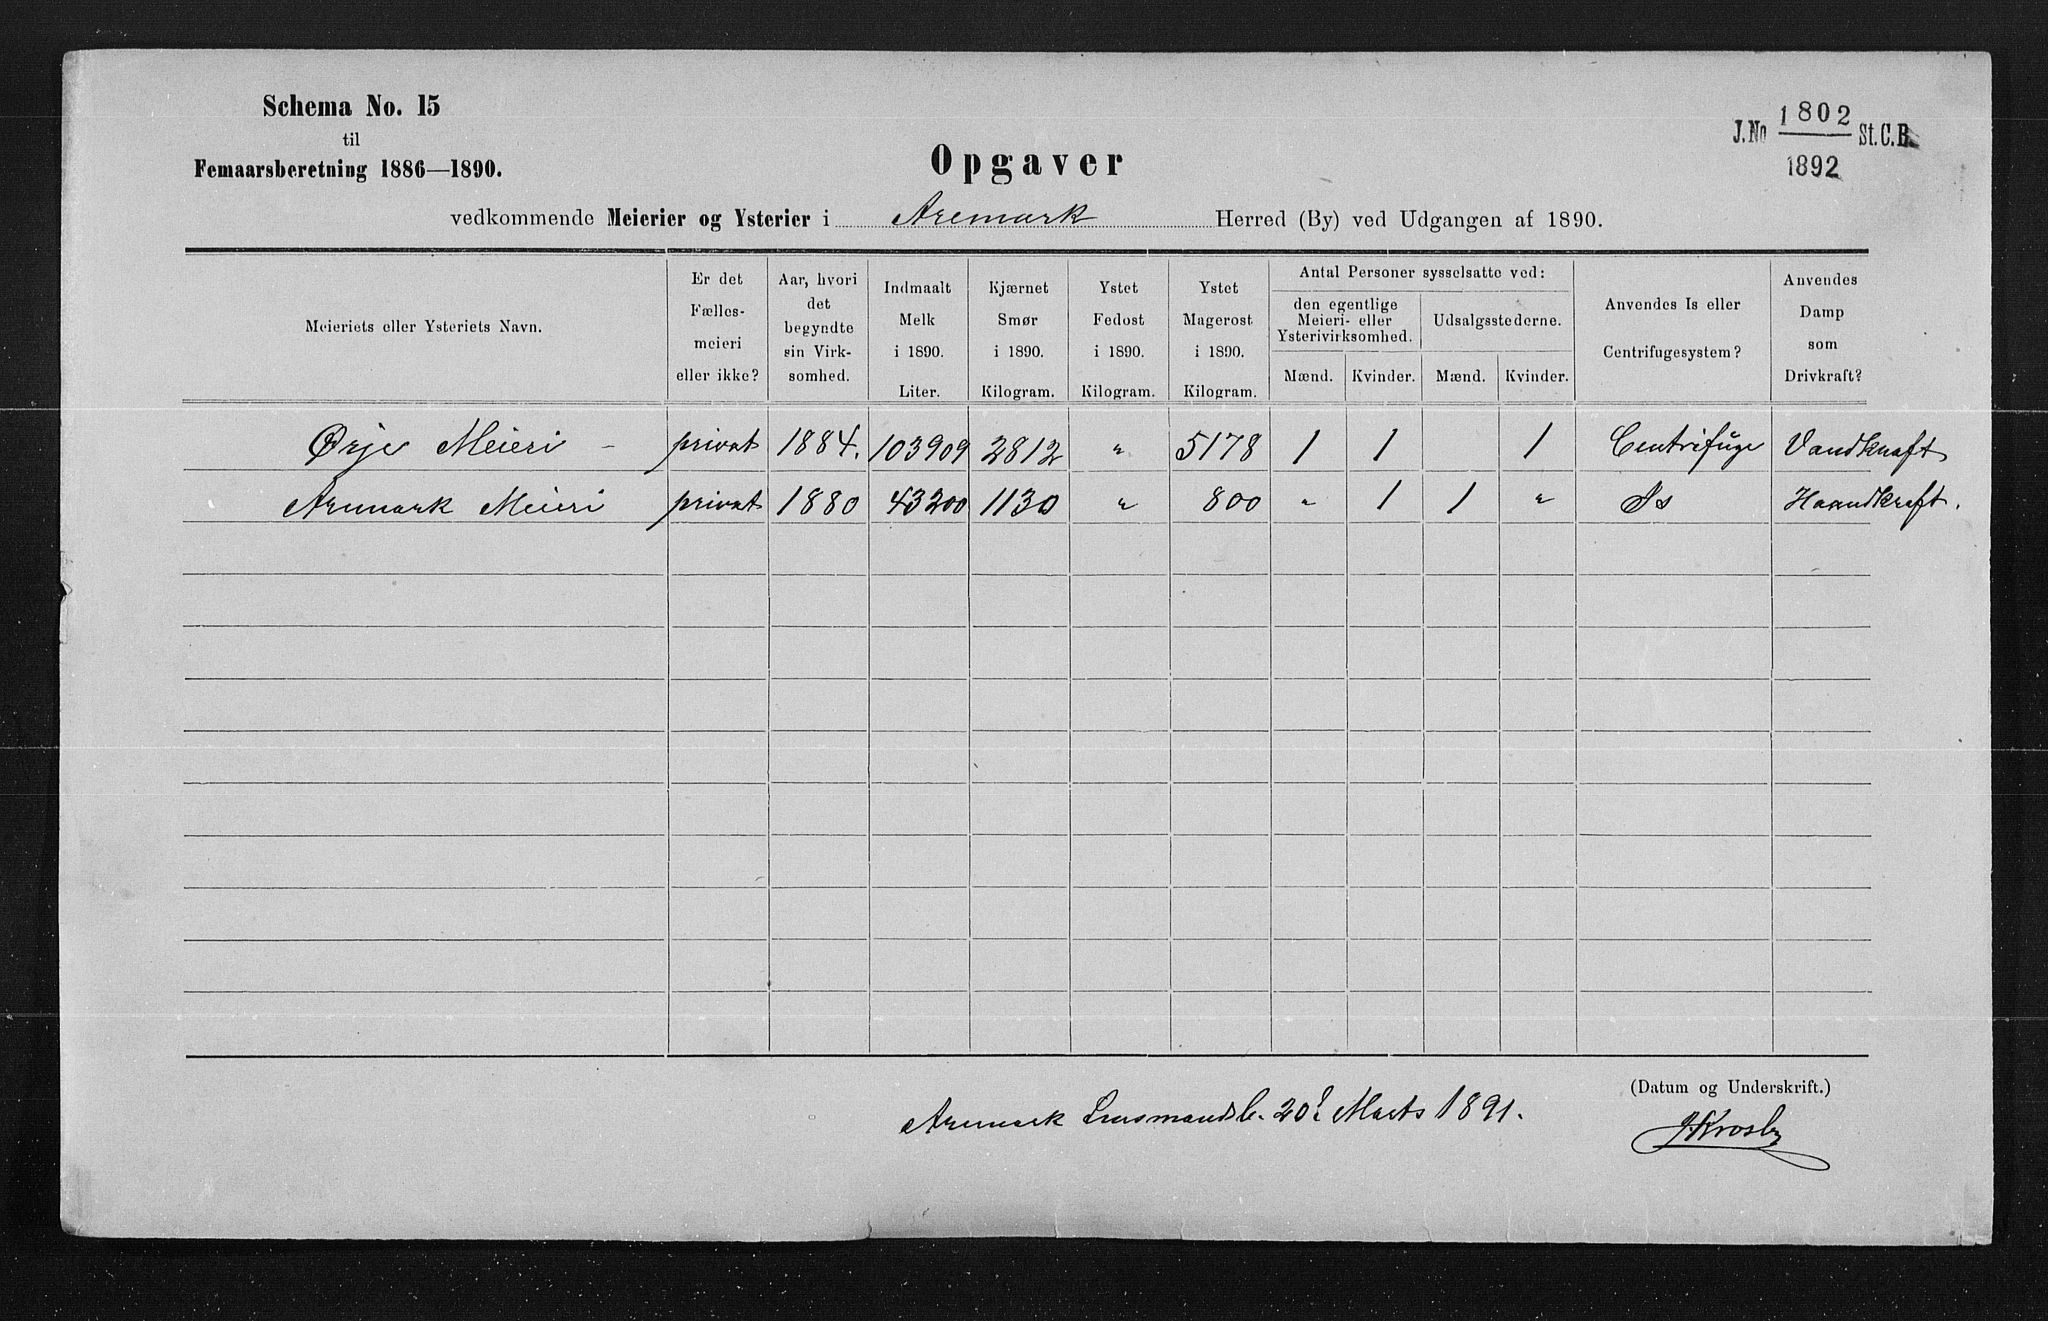 Schema No. 15
til
Femaarsberetning 1886—1890.
J.No 1802 St. C. B.
1892
Opgaver
vedkommende Meierier og Ysterier i Aremark Herred (By) ved Udgangen af 1890.
Meieriets eller Ysteriets Navn. | Er det Fælles-meieri eller ikke? | Aar, hvori det begyndte sin Virk-somhed. | Indmaalt Melk i 1890. Liter. | Kjærnet Smør i 1890. Kilogram. | Ystet Fedost i 1890. Kilogram. | Ystet Magerost i 1890. Kilogram. | Antal Personer sysselsatte ved: | Anvendes Is eller Centrifugesystem? | Anvendes Damp som Drivkraft?
den egentlige Meieri- eller Ysterivirksomhed. | Udsalgsstederne.
Mænd. | Kvinder. | Mænd. | Kvinder.
Ørje Meieri – | privat | 1884. | 103909 | 2812 | " | 5178 | 1 | 1 | | 1 | Centrifuge | Vandkraft
Aremark Meieri | privat | 1880 | 43200 | 1130 | " | 800 | " | 1 | 1 | " | Is | Haandkraft.
(Datum og Underskrift.)
Aremark Lensmandsb. 20 Marts 1891.
Krosby